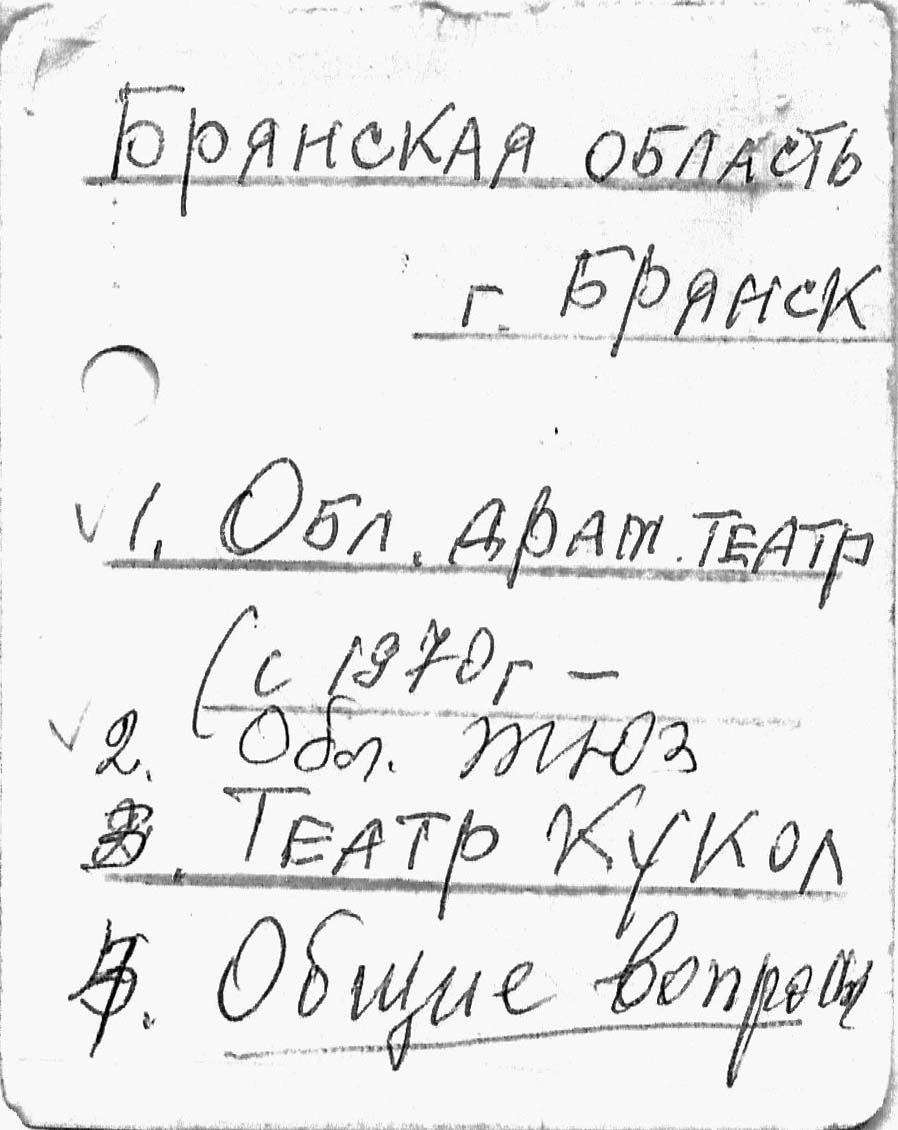 Брянская область
г. Брянск
1. Обл. драм. театр
(с 1970г –
2. Обл. тюз
Театр кукол
Общие вопросы